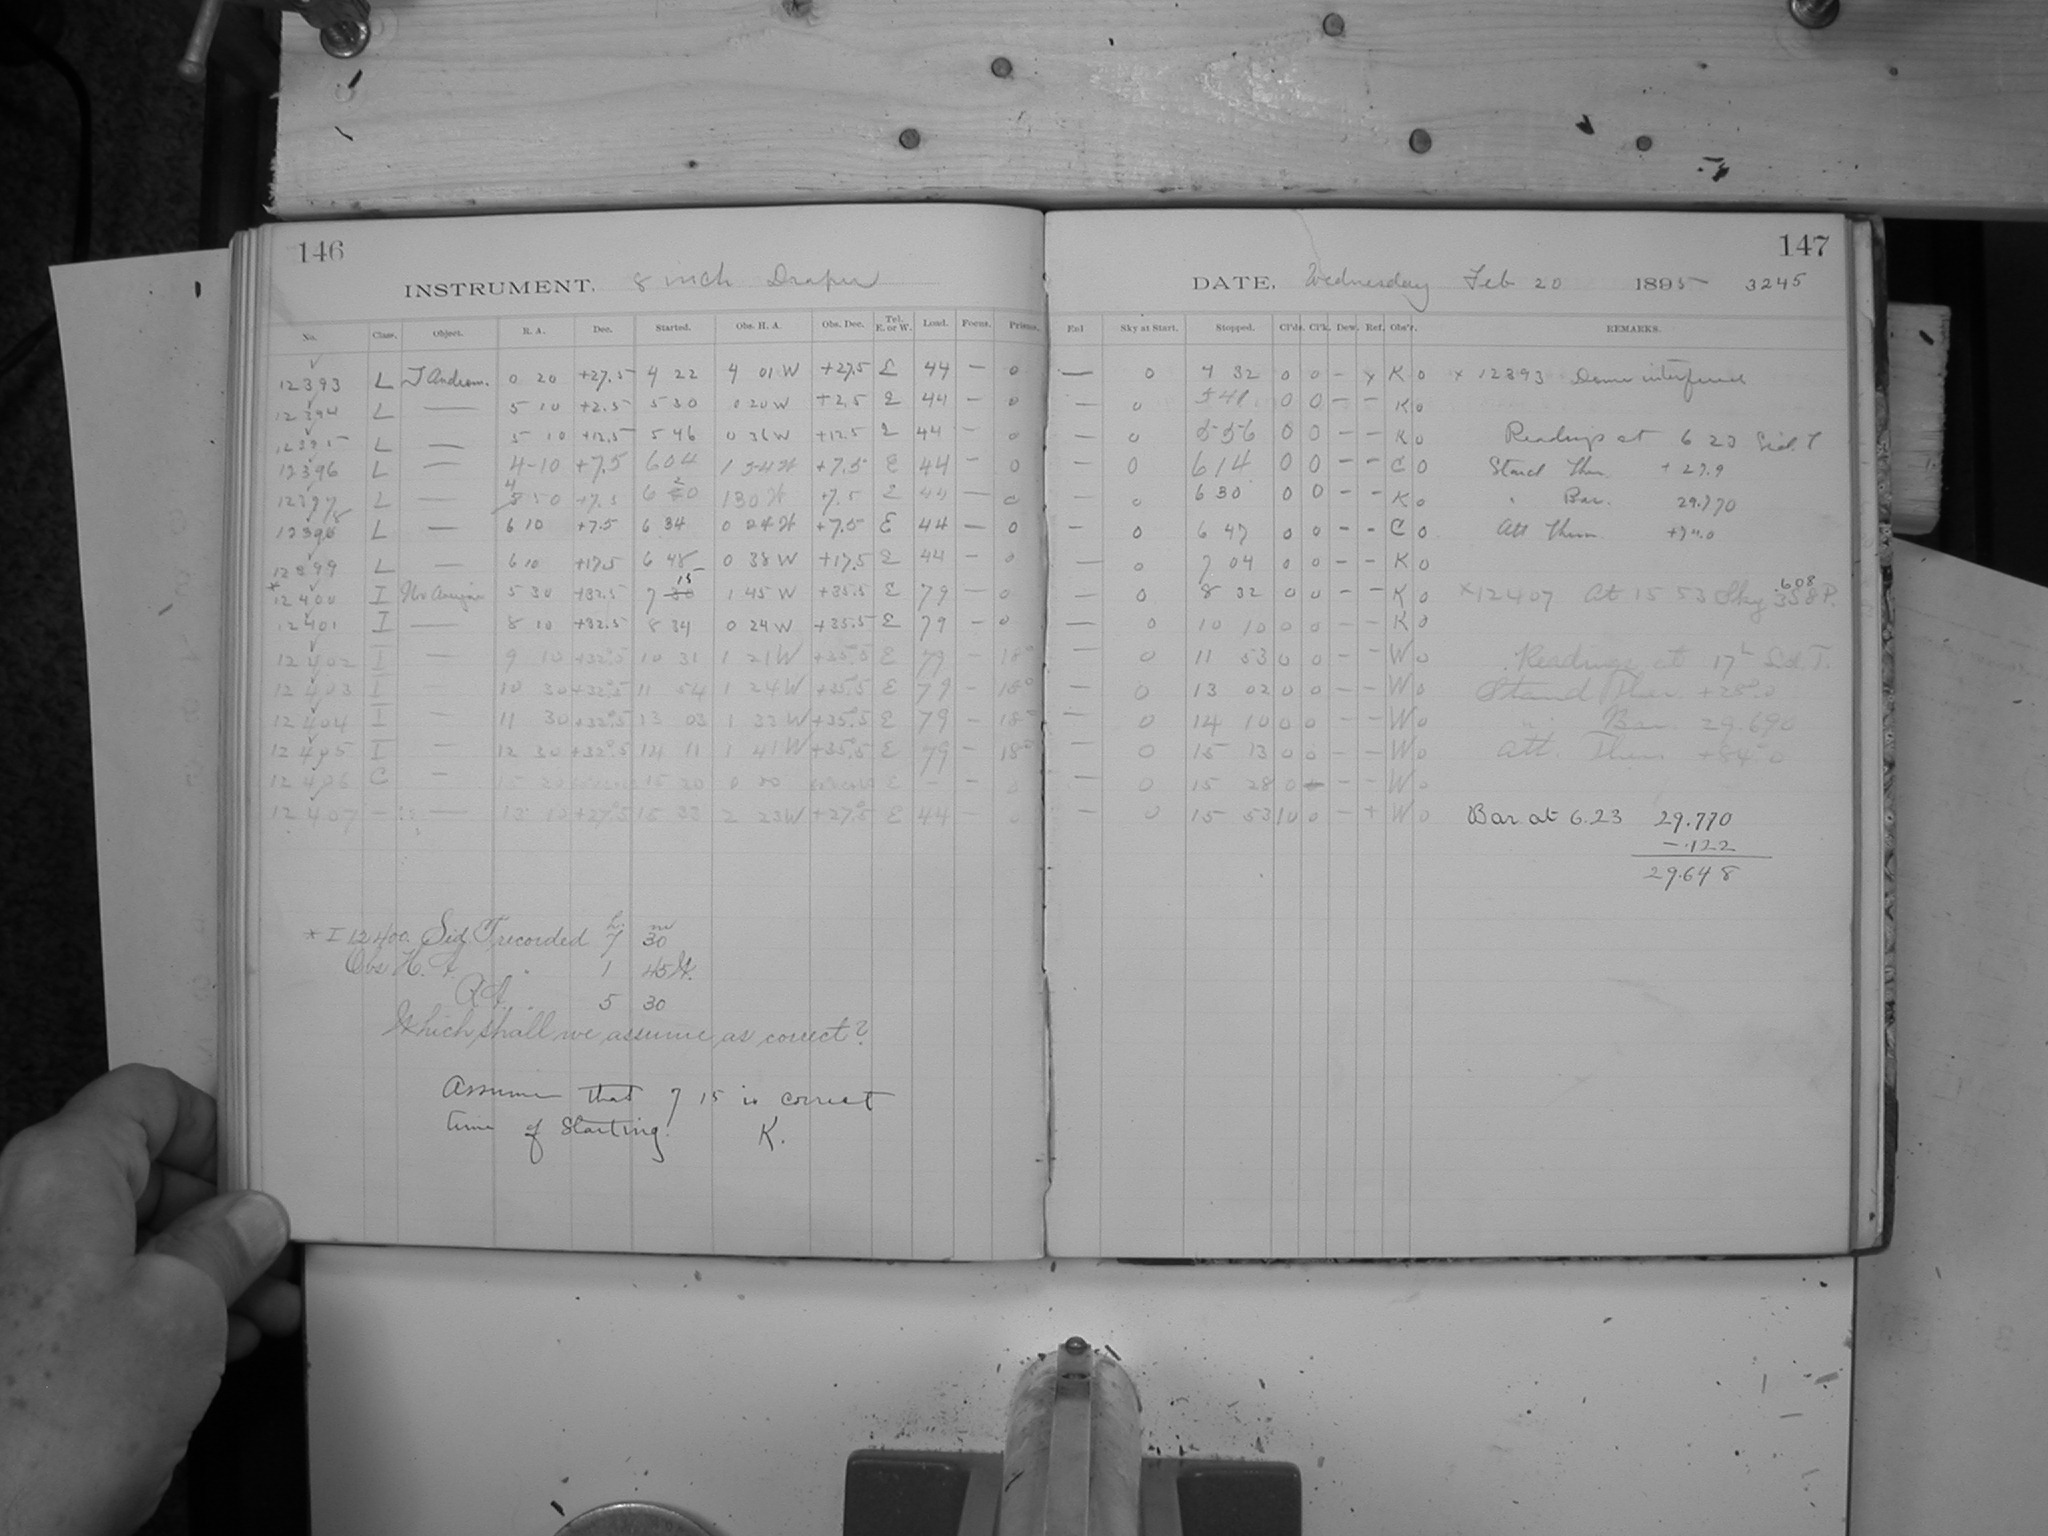 146
INSTRUMENT, 8 inch Draper
No. Class. Object. R. A. Dec. Started. Obs. H. A. Obs. Dec. Tel. E. or W. Load. Focus. Prisms.
12393 L T Androm. 0 20 +27.5 4 22 4 01 W +27.5 E 44 — 0
12394 L — 5 10 +2.5 5 30 0 20 W +2.5 E 44 — 0
12395 L — 5 10 +12.5 5 46 0 36 W +12.5 E 44 — 0
12396 L — 4 10 +7.5 6 04 1 54 W +7.5 E 44 — 0
12397 L — 4 50 +7.5 6 20 1 30 W +7.5 E 44 — 0
12398 L — 6 10 +7.5 6 34 0 24 W +7.5 E 44 — 0
12399 L — 6 10 +17.5 6 48 0 38 W +17.5 E 44 — 0
* 12400 I 5 30 +32.5 7 15 30 1 45 W +35.5 E 79 — 0
12401 I — 8 10 +32.5 8 34 0 24 W +35.5 E 79 — 0
12402 I — 9 10 +32°.5 10 31 1 21 W +35°.5 E 79 — 18°
12403 I — 10 30 +32°.5 11 54 1 24 W +35°.5 E 79 — 18°
12404 I — 11 30 +32°.5 13 03 1 33 W +35°.5 E 79 — 18°
12405 I — 12 30 +32°.5 14 11 1 41 W +35°.5 E 79 — 18°
12406 C — 15 20 15 20 0 00 E — — 0
12407 — — 13 10 +27°.5 15 33 2 23 W +27°.5 E 44 — 0
* I 12400. Sid. T. recorded 7 h. 30 m
Obs H. A. 1 45 W.
R.A. 5 30
Which shall we assume as correct?
Assume that 7 15 is correct
time of Starting. K.
147
DATE, Wednesday Feb 20 1895 3245
Enl Sky at Start. Stopped. Cl'ds. Cl'k. Dew. Ref. Obs'r. REMARKS.
— 0 4 32 0 0 - x K 0 x 12393 Dome interfered
— 0 5 41 0 0 - - K 0
— 0 5 56 0 0 - - K 0 Readings at 6 23 Sid. T
— 0 6 14 0 0 - - C 0 Stand Ther.
— 0 6 30 0 0 - - K 0 " Bar. 29.770
— 0 6 47 0 0 - - C 0 Att Therm.
— 0 7 04 0 0 - - K 0
— 0 8 32 0 0 - - K 0 x 12407 At 15 53 Sky .608 358 P.
— 0 10 10 0 0 - - K 0
— 0 11 53 0 0 - - W 0 Readings at 17h Sid. T.
— 0 13 02 0 0 - - W 0 Stand Ther. +28°.0
— 0 14 10 0 0 - - W 0 " Bar. 29.690
— 0 15 13 0 0 - - W 0 Att. Ther. +84°.0
— 0 15 28 0 - - W 0
— 0 15 53 10 0 - + W 0 Bar. at 6.23 29.770
- .122
29.648